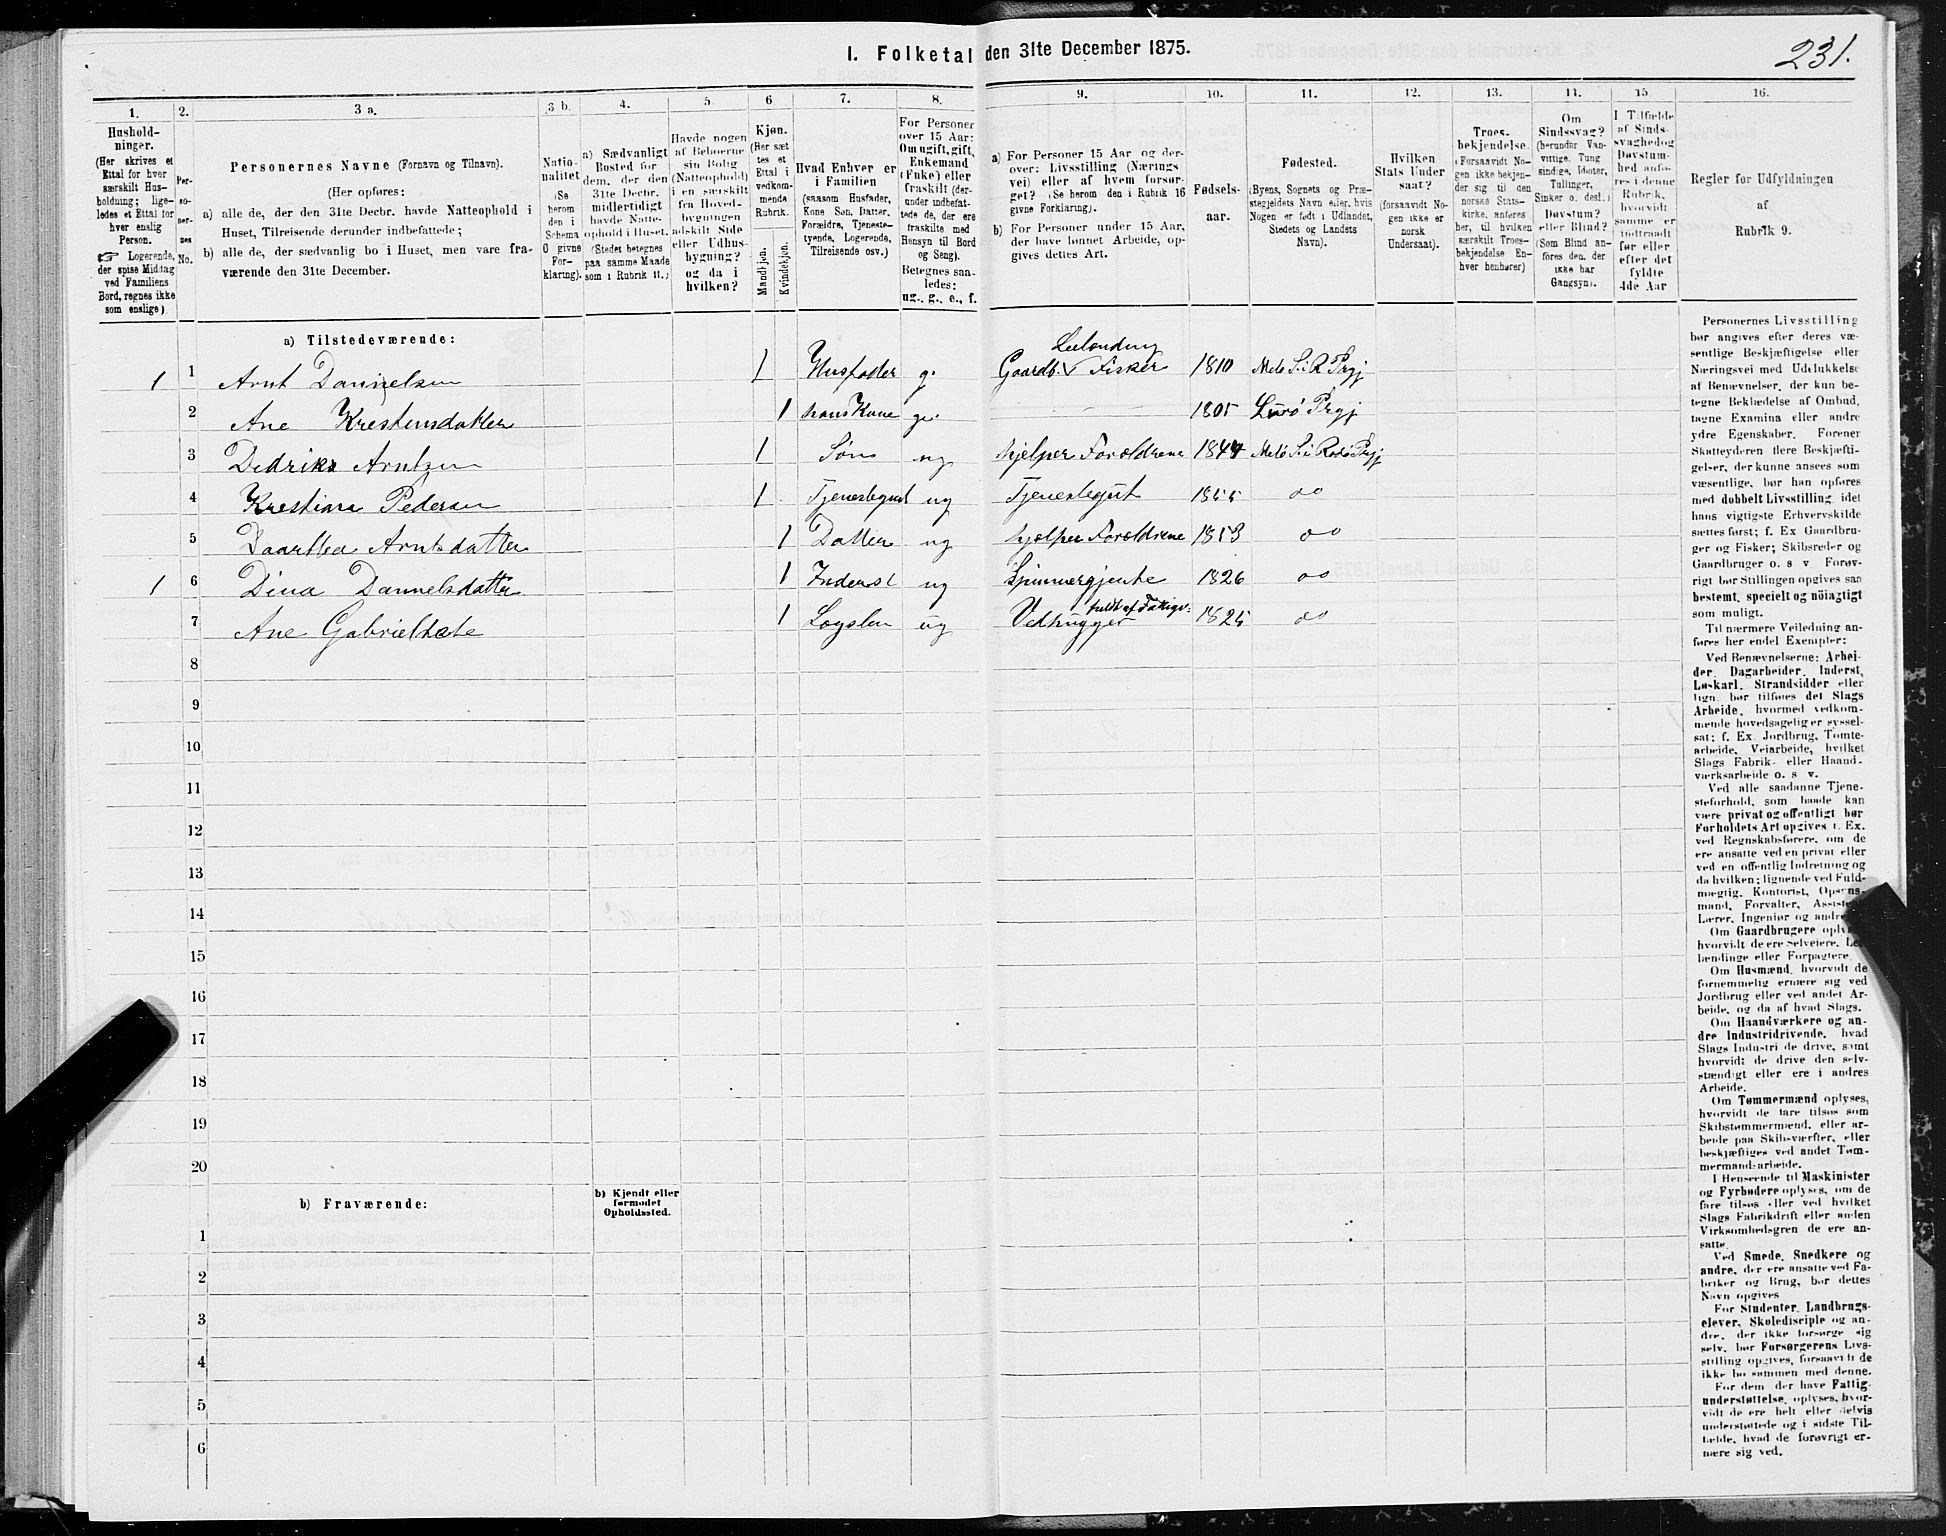 1. Folketal den 31te December 1875.
231.
1. 2. 3 a. 3 b. 4. 5. 6 7. 8. 9. 10. 11. 12. 13. 14. 15 16.
Hushold-
ninger.
(Her skrives et
Ettal for hver
særskilt Hus-
holdning; lige-
ledes et Ettal for
hver enslig
Person.
☞ Logerende,
der spise Middag
ved Familiens
Bord, regnes ikke
som enslige)
Per-
so-
ner-
nes
No.
Personernes Navne (Fornavn og Tilnavn).
(Her opføres:
a) alle de, der den 31te Decbr. havde Natteophold i
Huset, Tilreisende derunder indbefattede;
b) alle de, der sædvanlig bo i Huset, men vare fra-
værende den 31te December.
Natio-
nalitet
(Se
herom
den i
Schema
O givne
For-
klaring).
a) Sædvanligt
Bosted for
dem, der den
31te Decbr.
midlertidigt
havde Natte-
ophold i Huset.
(Stedet betegnes
paa samme Maade
som i Rubrik 11.)
Havde nogen
af Beboerne
sin Bolig
(Natteophold)
i en særskilt
fra Hoved-
bygningen
adskilt Side
eller Udhus-
bygning?
og da i
hvilken?
Kjøn.
(Her sæt
tes et
Ettal i
vedkom-
mende
Rubrik.
Mandkjøn.
Kvindekjøn.
Hvad Enhver er
i Familien
(saasom Husfader,
Kone Søn, Datter.
Forældre, Tjeneste-
tyende, Logerende,
Tilreisende osv.)
For Personer
over 15 Aar:
Om ugift, gift,
Enkemand
(Enke) eller
fraskilt (der-
under indbefat-
tede de, der ere
fraskilte med
Hensyn til Bord
og Seng).
Betegnes saa-
ledes:
ug., g., e., f.
a) For Personer 15 Aar og der-
over: Livsstilling (Nærings
vei) eller af hvem forsør-
get? (Se herom den i Rubrik 16
givne Forklaring).
b) For Personer under 15 Aar,
der have lønnet Arbeide, op-
gives dettes Art.
Fødsels-
aar.
Fødested.
(Byens, Sognets og Præ-
stegjeldets Navn eller, hvis
Nogen er født i Udlandet,
Stedets og Landets
Navn).
Hvilken
Stats Under
saat?
(forsaavidt No-
gen ikke er
norsk
Undersaat).
Troes-
bekjendelse.
(Forsaavidt No-
gen ikke bekjen-
der sig til den
norske Stats-
kirke, anføres
her, til hvilken
særskilt Troes-
bekjendelse En-
hver henhører)
Om
Sindssvag?
(herundar Van-
vittige, Tung
sindige, Idioter,
Tullinger,
Sinker o. desl.)
Døvstum?
eller Blind?
(Som Blind an-
føres den, der
ikke har
Gangsyn).
I Tilfælde
af Sinds-
svaghed og
Døvstum-
hed anfø-
res i denne
Rubrik,
hvorvidt
samme er
indtraadt
før eller
efter det
fyldte
4de Aar
Regler for Udfyldningen
af
Rubrik 9.
a) Tilstedeværende:
Leilending
1 1 Arnt Dannelsen 1 Husfader g. Gaardb. v Fisker 1810 Melø S. i R Prgj
2 Ane Krestensdatter 1 hans Kone g. 1805 Lurø Prgj
3 Dedriks Arntzen 1 Søn ug hjelper Forældrene 1844 Melø S. i Rødø Prgj
4 Krestian Pedersen 1 Tjenestegut ug Tjenestegut 1855 do
5 Daarthea Arntsdatter 1 Datter ug hjelper Forældrene 1853 do
1 6 Dina Dannelsdatter 1 Inderst ug Spinnergjente 1826 do
7 Ane Gabrielsdate 1 Logslem ug Vedhugger huldt af Fattigv: 1825 do
8
9
10
11
12
13
14
15
16
17
18
19
20
b) Fraværende:
b) Kjendt eller
formodet
Opholdssted.
1
2
3
4
5
6
Personernes Livsstilling
bør angives efter deres væ-
sentlige Beskjæftigelse eller
Næringsvei med Udelukkelse
af Benævnelser, der kun be-
tegne Beklædelse af Ombud,
tagne Examina eller andre
ydre Egenskaber. Forener
Skatteyderen flere Beskjæfti-
gelser, der kunne ansees som
væsentlige, bør han opføres
med dobbelt Livsstilling, idet
hans vigtigste Erhvervskilde
sættes først; f. Ex Gaardbru-
ger og Fisker; Skibsreder og
Gaardbruger o. s v Forøv-
rigt bør Stillingen opgives saa
bestemt, specielt og nöiagtigt
som muligt.
Til nærmere Veiledning an-
føres her endel Exempler:
Ved Benævnelserne: Arbei-
der, Dagarbeider, Inderst,
Løskarl, Strandsidder eller
lign. bør tilføies det Slags
Arbeide, hvormed vedkom-
mende hovedsagelig er syssel-
sat; f. Ex. Jordbrug, Tomte-
arbeide, Veiarbeide, hvilket
Slags Fabrik- eller Haand-
værksarbeide o. s v.
Ved alle saadanne Tjene-
steforhold, som baade kan
være privat og offentligt bør
Forholdets Art opgives f. Ex.
ved Regnskabsførere, om de
ere ansatte ved en privat eller
ved en offentlig Indretning og
da hvilken; lignende ved Fuld-
mægtig, Kontorist, Opsyns-
mand, Forvalter, Assistent,
Lærer, Ingeniør og andre.
Om Gaardbrugere oplyses,
hvorvidt de ere Selveiere, Lei-
lændinge eller Forpagtere.
Om Husmænd, hvorvidt de
fornemmelig ernære sig ved
Jordbrug eller ved andet Ar-
beide, og da af hvad Slags.
Om Haandværkere og an-
dre Industridrivende, hvad
Slags Industri de drive, samt
hvorvidt de drive den selv-
stændigt eller ere i andres
Arbeide.
Om Tømmermænd oplyses,
hvorvidt de fare tilsøs som
Skibstømmermænd, eller ar-
beide paa Skibsværfter, eller
beskjæftiges ved andet Tøm-
mermandsarbeide.
I Henseende til Maskinister
og Fyrbødere oplyses, om de
fare tilsøs eller ved hvilket
Slags Fabrikdrift eller anden
Virksomhedsgren de ere an-
satte.
Ved Smede, Snedkere og
andre, der ere ansatte ved Fa-
briker og Brug, bør dettes
Navn opgives
For Studenter, Landbrugs-
elever, Skoledisciple og an-
dre, der ikke forsørge sig
selv, bør Forsørgerens Livs-
stilling opgives, forsaavidt de
ikke bo sammen med denne.
For dem, der have Fattig-
understøttelse, oplyses, hvor-
vidt de ere helt eller delvis
understøttede og i sidste Til-
fælde, hvad de forøvrigt er-
nære sig ved.